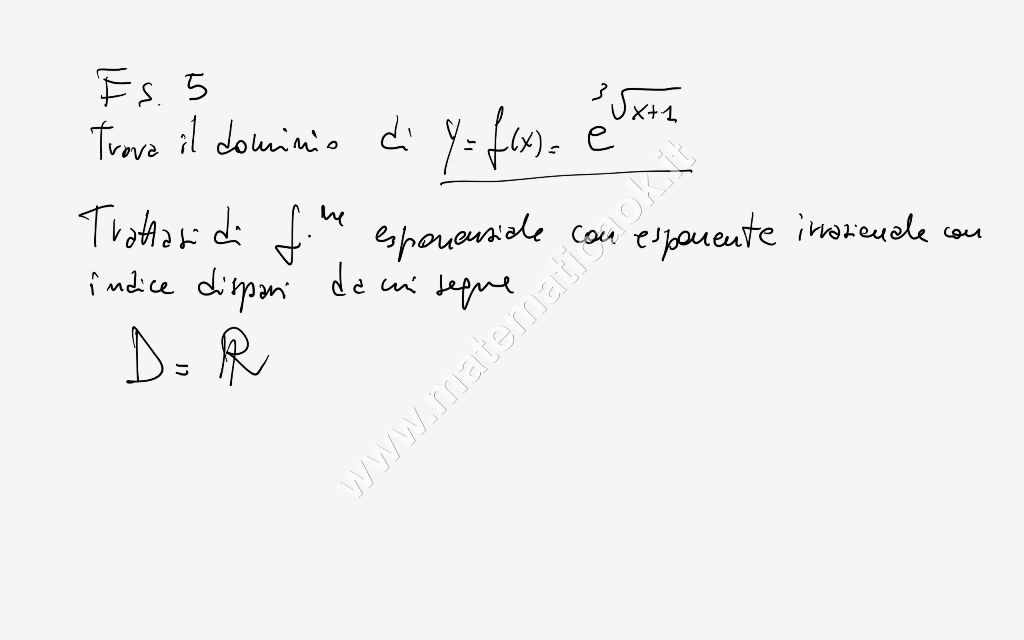 Es. 5
Trova il dominio di y = f(x) = e^∛(x+1)
Trattasi di f.ne esponenziale con esponente irrazionale con
indice dispari da cui segue
D = ℝ
www.matematicaok.it